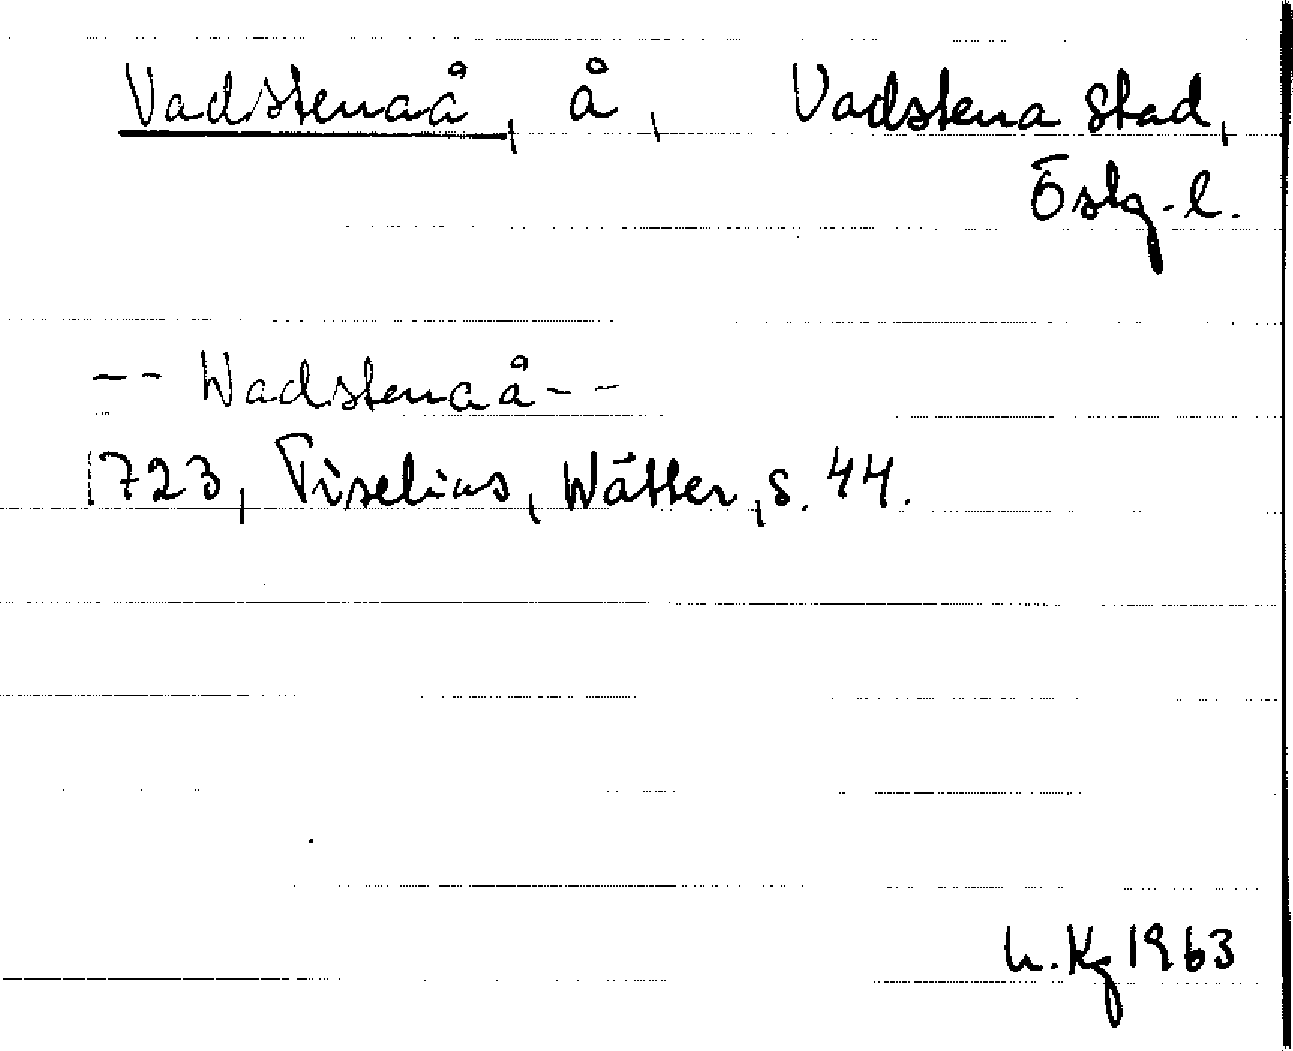 Vadstenaå, å, Vadstena stad,
Östg. l.
-- Wadstenaå --
1723, Tiselius, Wätter, s. 44.
h. Kg 1963